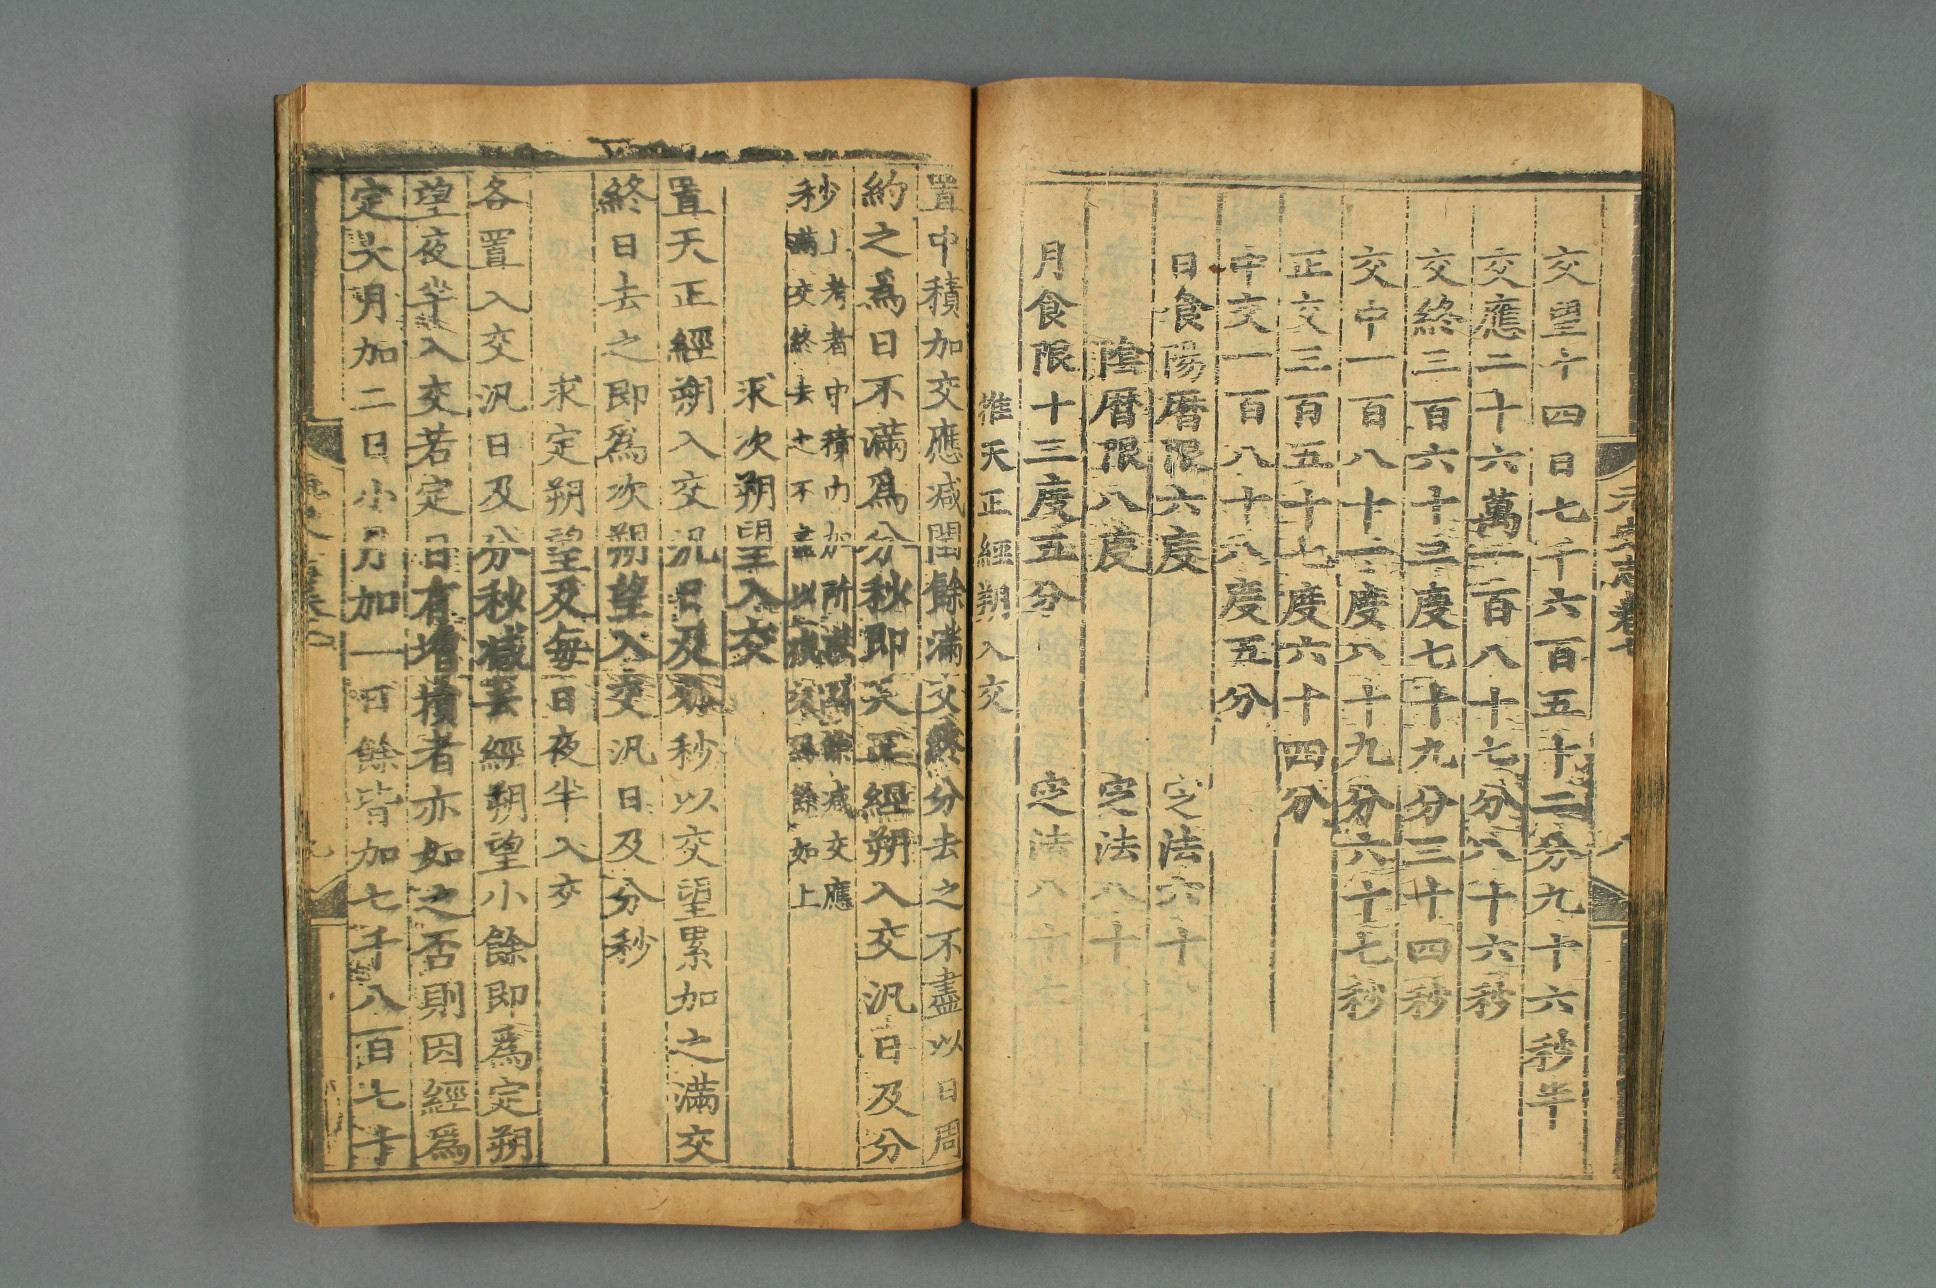 元史志卷七 八
交望十四日七千六百五十二分九十六秒半
交應二十六萬一百八十七分八十六秒
交終三百六十三度七十九分三十四秒
交中一百八十一度八十九分六十七秒
正交三百五十七度六十四分
中交一百八十八度五分
日食陽曆限六度 定法六十
陰曆限八度 定法八十
月食限十三度五分 定法八十七
推天正經朔入交
置中積加交應减閏餘滿交終分去之不盡以日周
約之爲日不滿爲分秒即天正經朔入交汎日及分
秒上考者中積內加所求閏餘减交應
滿交終去之不盡以减交終餘如上
求次朔望入交
置天正經朔入交汎日及分秒以交望累加之滿交
終日去之即爲次朔望入交汎日及分秒
求定朔望及每日夜半入交
各置入交汎日及分秒减去經朔望小餘即爲定朔
望夜半入交若定日有增損者亦如之否則因經爲
定大月加二日小月加一日餘皆加七千八百七十
九